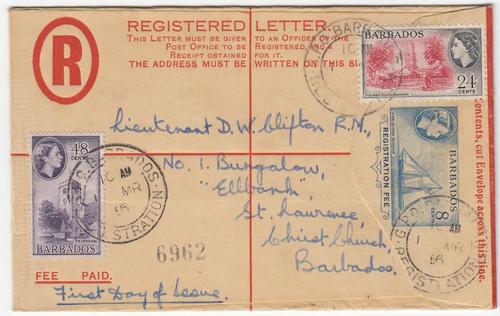 REGISTERED LETTER.
THIS LETTER MUST BE GIVEN TO AN OFFICER OF THE
POST OFFICE TO BE REGISTERED AND A
RECEIPT OBTAINED FOR IT.
THE ADDRESS MUST BE WRITTEN ON THIS SIDE
R
BARBADOS
24
CENTS
Lieutenant D.W. Clifton R.M.,
No. 1. Bungalow,
"Ellbank",
St. Lawrence
Christ Church,
Barbados.
48
CENTS
BARBADOS
G.P.O. BARBADOS
10 AM
1 MR
56
REGISTRATION
BARBADOS
REGISTRATION FEE
8
CENTS
G.P.O. BARBADOS
AM
1 MR
56
REGISTRATION
BARBADOS
10 AM
contents, cut Envelope across this line.
6962
FEE PAID.
First Day of Issue.